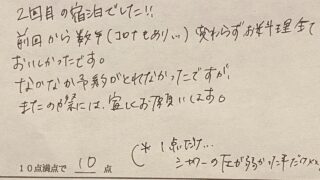 2回目の宿泊でした!!
前回から数年(コロナもあり…)変わらずお料理全て
おいしかったです。
なかなか予約がとれなかったですが、
またの際には、宜しくお願いします。
(* 1点だけ…
シャワーの圧が弱かった
10点満点で 10 点